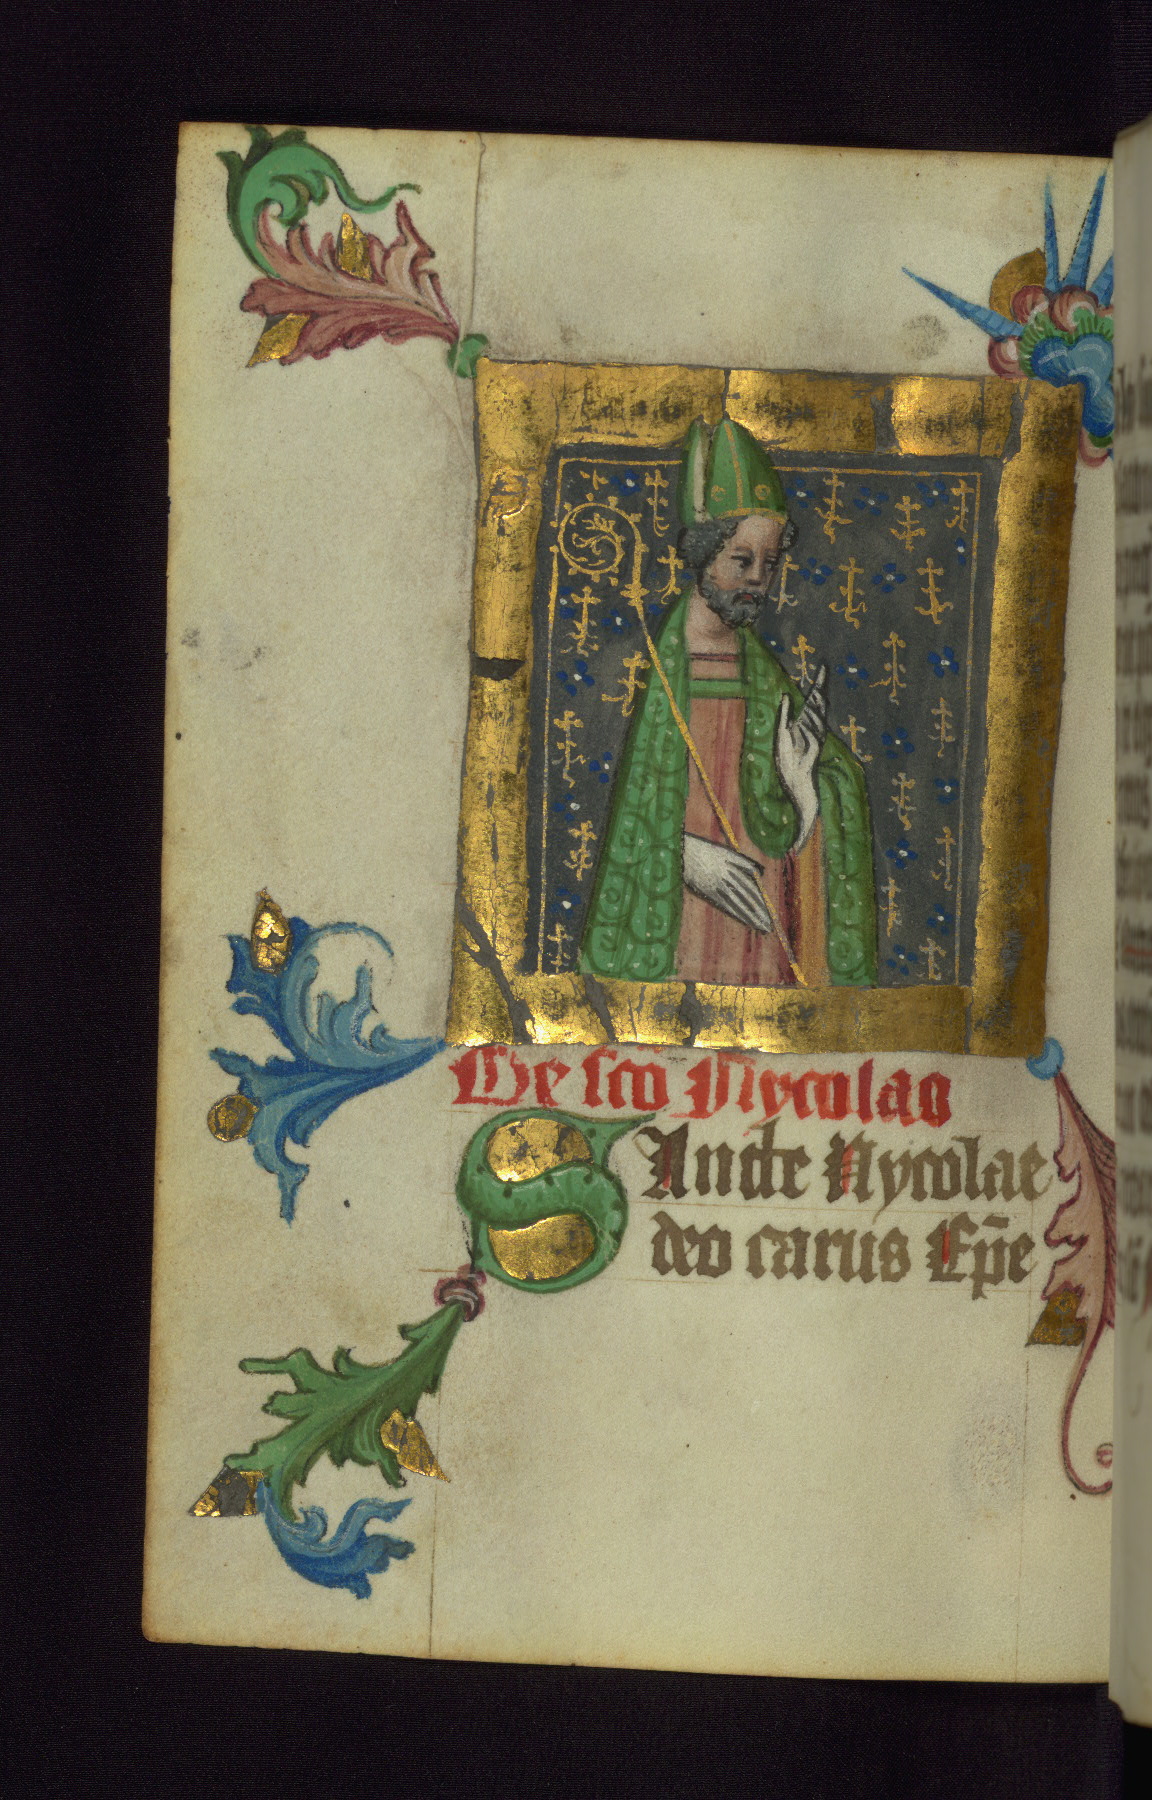 De sc̄o Nycolao
SAncte Nycolae
deo carus Ep̄e